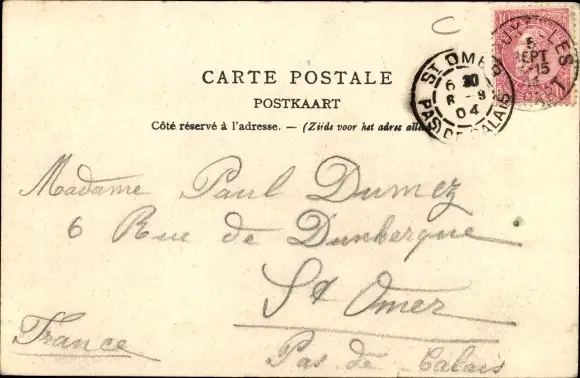 CARTE POSTALE
POSTKAART
Côté réservé à l'adresse. — (Zijde voor het adres alleen)
10
5
SEPT
15
ST OMER
6
8-9
04
PAS DE CALAIS
Madame Paul Dumez
6 Rue de Dunkerque
St Omer
France
Pas de Calais